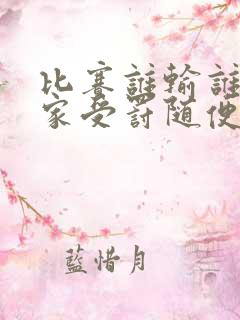 比賽誰輸誰
家受罰随便
藍惜月